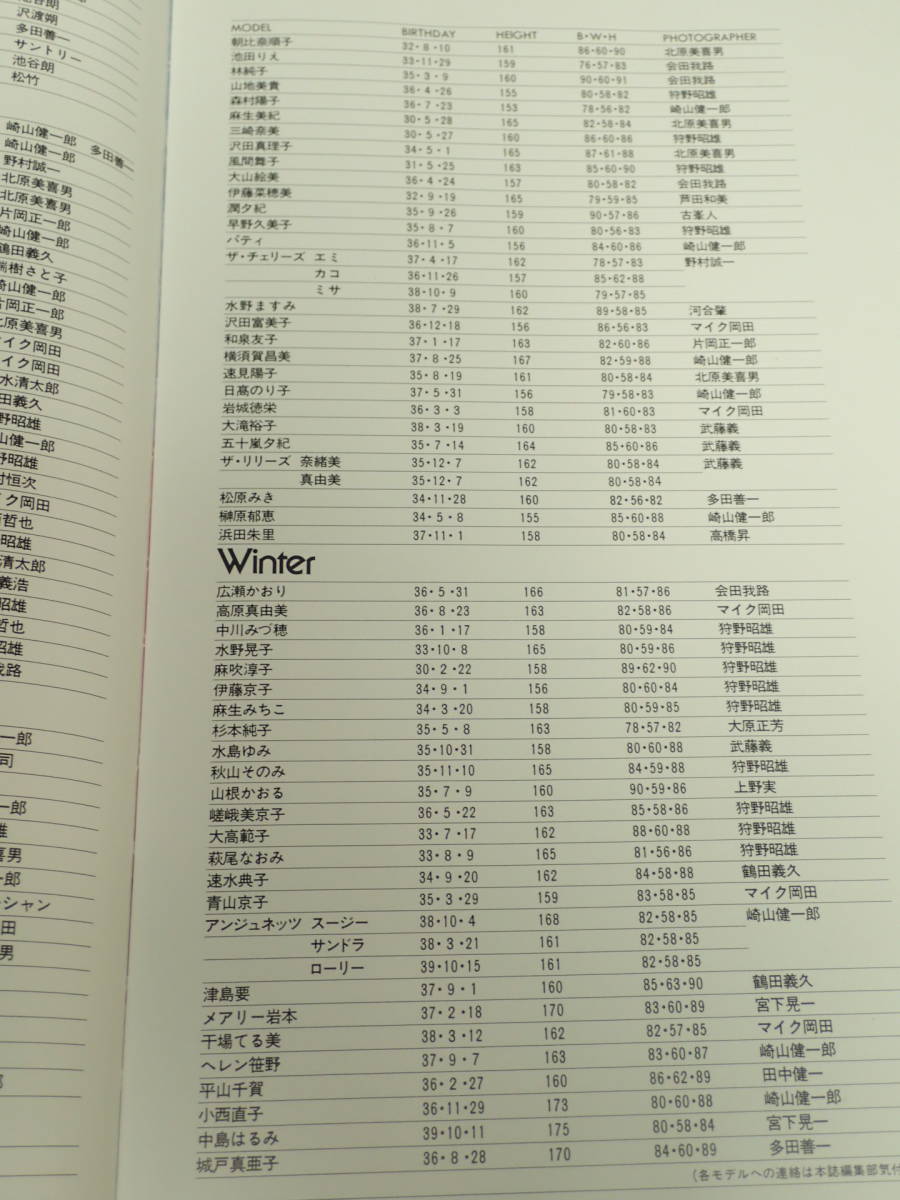 池谷朗
沢渡朔
多田善一
サントリー
池谷朗
松竹
崎山健一郎 多田善一
崎山健一郎
野村誠一
北原美喜男
北原美喜男
片岡正一郎
崎山健一郎
鶴田義久
さと子
崎山健一郎
片岡正一郎
北原美喜男
マイク岡田
マイク岡田
水清太郎
田義久
野昭雄
山健一郎
野昭雄
村恒次
イク岡田
哲也
昭雄
清太郎
義浩
昭雄
哲也
昭雄
我路
一郎
司
一郎
雄
喜男
一郎
シャン
田
男
MODEL BIRTHDAY HEIGHT B・W・H PHOTOGRAPHER
朝比奈順子 32・8・10 161 86・60・90 北原美喜男
池田りえ 33・11・29 159 76・57・83 会田我路
林純子 35・3・9 160 90・60・91 会田我路
山地美貴 36・4・26 155 80・58・82 狩野昭雄
森村陽子 36・7・23 153 78・56・82 崎山健一郎
麻生美紀 30・5・28 165 82・58・84 北原美喜男
三崎奈美 30・5・27 160 86・60・86 狩野昭雄
沢田真理子 34・5・1 165 87・61・88 北原美喜男
風間舞子 31・5・25 163 85・60・90 狩野昭雄
大山絵美 36・4・24 157 80・58・82 会田我路
伊藤菜穂美 32・9・19 165 79・59・85 芦田和美
潤夕紀 35・9・26 159 90・57・86 古峯人
早野久美子 35・8・7 160 80・56・83 狩野昭雄
パティ 36・11・5 156 84・60・86 崎山健一郎
ザ・チェリーズ エミ 37・4・17 162 78・57・83 野村誠一
カコ 36・11・26 157 85・62・88
ミサ 38・10・9 160 79・57・85
水野ますみ 38・7・29 162 89・58・85 河合肇
沢田富美子 36・12・18 156 86・56・83 マイク岡田
和泉友子 37・1・17 163 82・60・86 片岡正一郎
横須賀昌美 37・8・25 167 82・59・88 崎山健一郎
速見陽子 35・8・19 161 80・58・84 北原美喜男
日髙のり子 37・5・31 156 79・58・83 崎山健一郎
岩城徳栄 36・3・3 158 81・60・83 マイク岡田
大滝裕子 38・3・19 160 80・58・83 武藤義
五十嵐夕紀 35・7・14 164 85・60・86 武藤義
ザ・リリーズ 奈緒美 35・12・7 162 80・58・84 武藤義
真由美 35・12・7 162 80・58・84
松原みき 34・11・28 160 82・56・82 多田善一
榊原郁恵 34・5・8 155 85・60・88 崎山健一郎
浜田朱里 37・11・1 158 80・58・84 高橋昇
Winter
広瀬かおり 36・5・31 166 81・57・86 会田我路
高原真由美 36・8・23 163 82・58・86 マイク岡田
中川みづ穂 36・1・17 158 80・59・84 狩野昭雄
水野晃子 33・10・8 165 80・59・86 狩野昭雄
麻吹淳子 30・2・22 158 89・62・90 狩野昭雄
伊藤京子 34・9・1 156 80・60・84 狩野昭雄
麻生みちこ 34・3・20 158 80・59・85 狩野昭雄
杉本純子 35・5・8 163 78・57・82 大原正芳
水島ゆみ 35・10・31 158 80・60・88 武藤義
秋山そのみ 35・11・10 165 84・59・88 狩野昭雄
山根かおる 35・7・9 160 90・59・86 上野実
嵯峨美京子 36・5・22 163 85・58・86 狩野昭雄
大高範子 33・7・17 162 88・60・88 狩野昭雄
萩尾なおみ 33・8・9 165 81・56・86 狩野昭雄
速水典子 34・9・20 162 84・58・88 鶴田義久
青山京子 35・3・29 159 83・58・85 マイク岡田
アンジュネッツ スージー 38・10・4 168 82・58・85 崎山健一郎
サンドラ 38・3・21 161 82・58・85
ローリー 39・10・15 161 82・58・85
津島要 37・9・1 160 85・63・90 鶴田義久
メアリー岩本 37・2・18 170 83・60・89 宮下晃一
干場てる美 38・3・12 162 82・57・85 マイク岡田
ヘレン笹野 37・9・7 163 83・60・87 崎山健一郎
平山千賀 36・2・27 160 86・62・89 田中健一
小西直子 36・11・29 173 80・60・88 崎山健一郎
中島はるみ 39・10・11 175 80・58・84 宮下晃一
城戸真亜子 36・8・28 170 84・60・89 多田善一
(各モデルへの連絡は本誌編集部気付